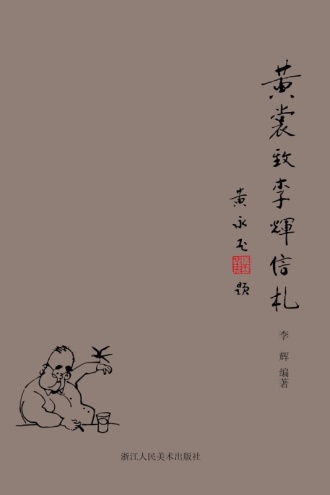 黄裳致李輝信札
黄永玉
題
李辉 编著
浙江人民美术出版社